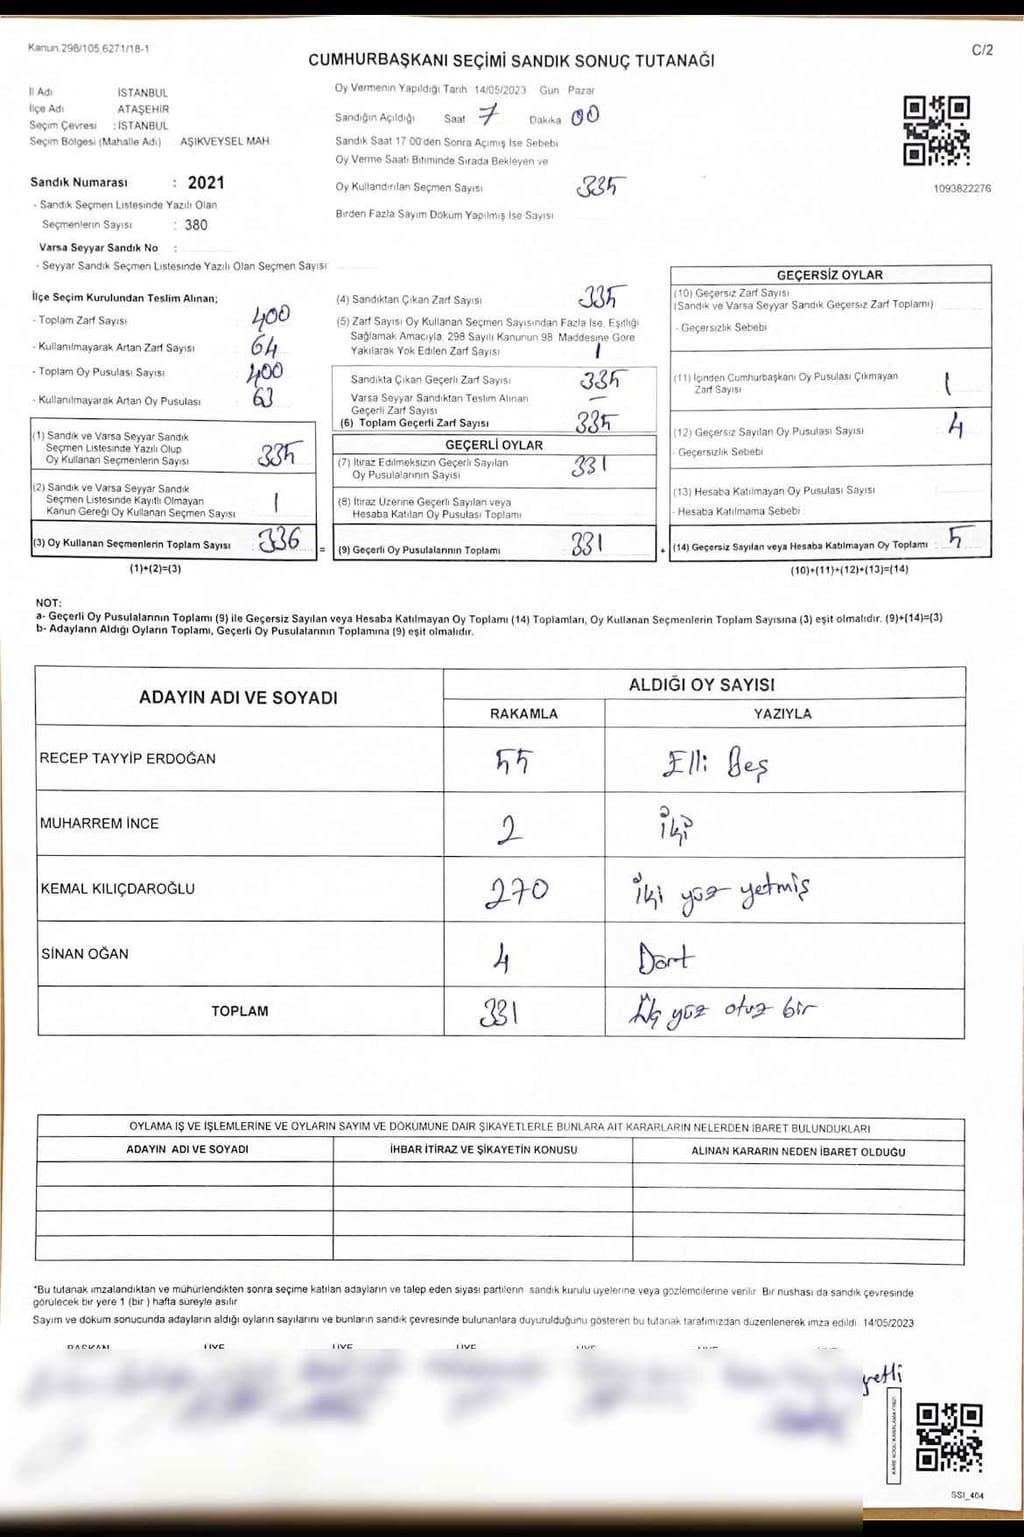 Kanun.298/105.6271/18-1
C/2
CUMHURBAŞKANI SEÇİMİ SANDIK SONUÇ TUTANAĞI
İl Adı İSTANBUL
İlçe Adı ATAŞEHİR
Seçim Çevresi : İSTANBUL
Seçim Bölgesi (Mahalle Adı) AŞIKVEYSEL MAH
Oy Vermenin Yapıldığı Tarih 14/05/2023 Gün Pazar
Sandığın Açıldığı Saat 7 Dakika 00
Sandık Saat 17 00'den Sonra Açımış İse Sebebi
Oy Verme Saati Bitiminde Sırada Bekleyen ve
Oy Kullandırılan Seçmen Sayısı 335
Birden Fazla Sayım Döküm Yapılmış İse Sayısı
1093822276
Sandık Numarası : 2021
- Sandık Seçmen Listesinde Yazılı Olan
Seçmenlerin Sayısı : 380
Varsa Seyyar Sandık No :
- Seyyar Sandık Seçmen Listesinde Yazılı Olan Seçmen Sayısı
İlçe Seçim Kurulundan Teslim Alınan;
- Toplam Zarf Sayısı 400
- Kullanılmayarak Artan Zarf Sayısı 64
- Toplam Oy Pusulası Sayısı 400
- Kullanılmayarak Artan Oy Pusulası 63
(1) Sandık ve Varsa Seyyar Sandık
Seçmen Listesinde Yazılı Olup
Oy Kullanan Seçmenlerin Sayısı 335
(2) Sandık ve Varsa Seyyar Sandık
Seçmen Listesinde Kayıtlı Olmayan
Kanun Gereği Oy Kullanan Seçmen Sayısı 1
(3) Oy Kullanan Seçmenlerin Toplam Sayısı 336 =
(1)+(2)=(3)
(4) Sandıktan Çıkan Zarf Sayısı 335
(5) Zarf Sayısı Oy Kullanan Seçmen Sayısından Fazla İse, Eşitliği
Sağlamak Amacıyla, 298 Sayılı Kanunun 98 Maddesine Göre
Yakılarak Yok Edilen Zarf Sayısı 1
Sandıkta Çıkan Geçerli Zarf Sayısı 335
Varsa Seyyar Sandıktan Teslim Alınan
Geçerli Zarf Sayısı –
(6) Toplam Geçerli Zarf Sayısı 335
GEÇERLİ OYLAR
(7) İtiraz Edilmeksizin Geçerli Sayılan
Oy Pusulalarının Sayısı 331
(8) İtiraz Üzerine Geçerli Sayılan veya
Hesaba Katılan Oy Pusulası Toplamı
(9) Geçerli Oy Pusulalarının Toplamı 331 +
GEÇERSİZ OYLAR
(10) Geçersiz Zarf Sayısı
(Sandık ve Varsa Seyyar Sandık Geçersiz Zarf Toplamı)
- Geçersizlik Sebebi
(11) İçinden Cumhurbaşkanı Oy Pusulası Çıkmayan
Zarf Sayısı 1
(12) Geçersiz Sayılan Oy Pusulası Sayısı 4
- Geçersizlik Sebebi
(13) Hesaba Katılmayan Oy Pusulası Sayısı
- Hesaba Katılmama Sebebi :
(14) Geçersiz Sayılan veya Hesaba Katılmayan Oy Toplamı : 5
(10)+(11)+(12)+(13)=(14)
NOT:
a- Geçerli Oy Pusulalarının Toplamı (9) ile Geçersiz Sayılan veya Hesaba Katılmayan Oy Toplamı (14) Toplamları, Oy Kullanan Seçmenlerin Toplam Sayısına (3) eşit olmalıdır. (9)+(14)=(3)
b- Adayların Aldığı Oyların Toplamı, Geçerli Oy Pusulalarının Toplamına (9) eşit olmalıdır.
ADAYIN ADI VE SOYADI
ALDIĞI OY SAYISI
RAKAMLA YAZIYLA
RECEP TAYYİP ERDOĞAN 55 Elli Beş
MUHARREM İNCE 2 iki
KEMAL KILIÇDAROĞLU 270 iki yüz yetmiş
SİNAN OĞAN 4 Dört
TOPLAM 331 Üç yüz otuz bir
OYLAMA İŞ VE İŞLEMLERİNE VE OYLARIN SAYIM VE DÖKÜMÜNE DAİR ŞİKAYETLERLE BUNLARA AİT KARARLARIN NELERDEN İBARET BULUNDUKLARI
ADAYIN ADI VE SOYADI İHBAR İTİRAZ VE ŞİKAYETİN KONUSU ALINAN KARARIN NEDEN İBARET OLDUĞU
*Bu tutanak imzalandıktan ve mühürlendikten sonra seçime katılan adayların ve talep eden siyasi partilerin sandık kurulu üyelerine veya gözlemcilerine verilir. Bir nüshası da sandık çevresinde
görülecek bir yere 1 (bir ) hafta süreyle asılır
Sayım ve döküm sonucunda adayların aldığı oyların sayılarını ve bunların sandık çevresinde bulunanlara duyurulduğunu gösteren bu tutanak tarafımızdan düzenlenerek imza edildi 14/05/2023
BAŞKAN ÜYE ÜYE ÜYE
SSI_404